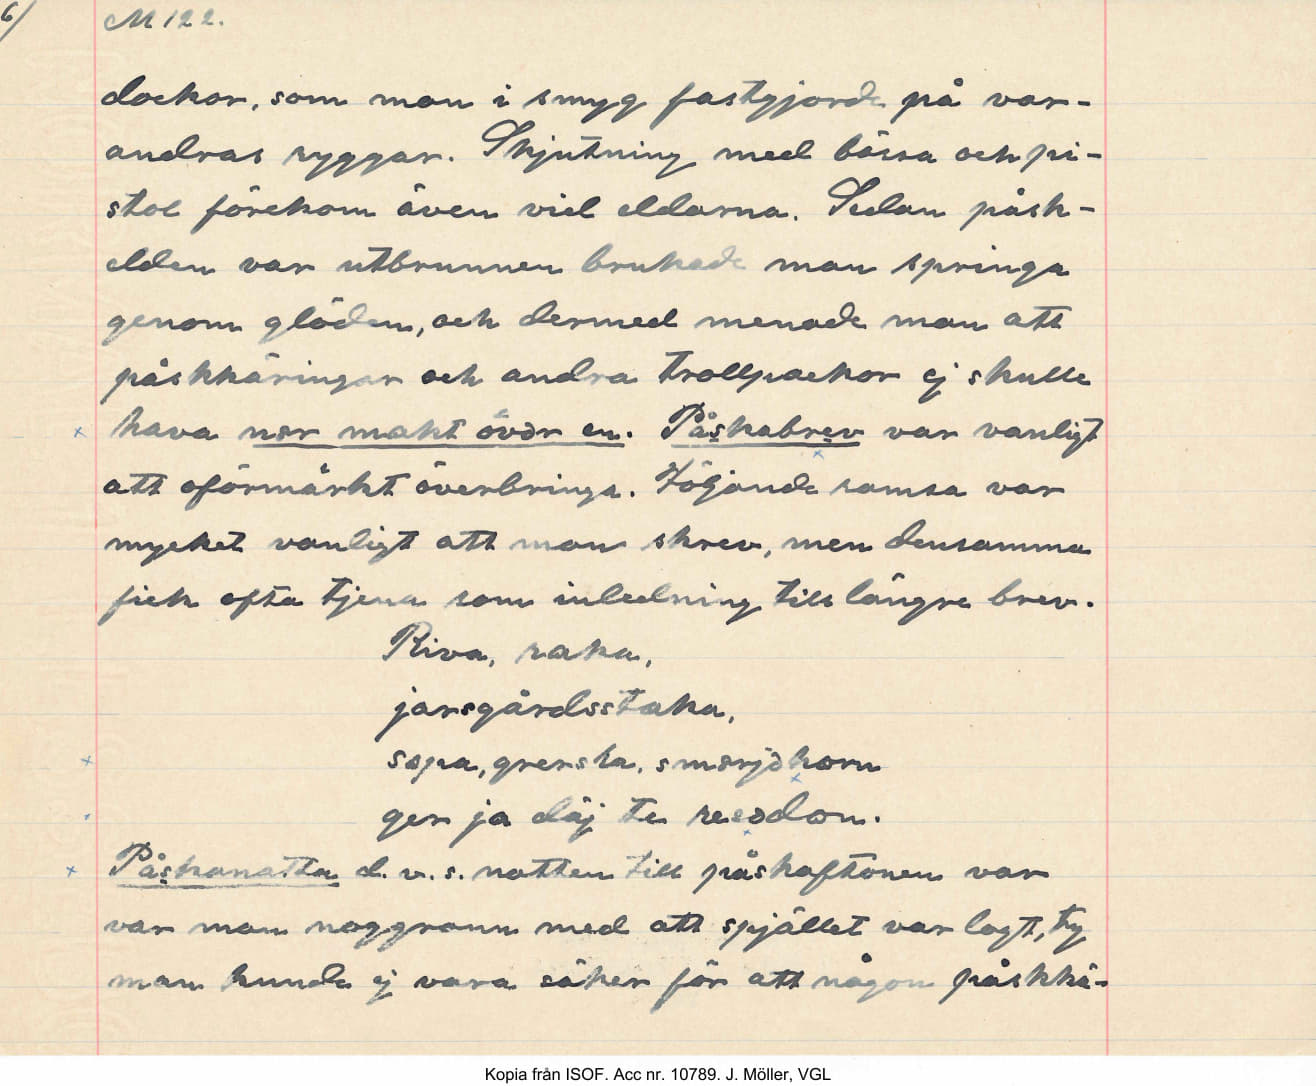 6/
M 122.
dockor, som man i smyg fastgjorde på var-
andras ryggar. Skjutning med bössa och pi-
stol förekom även vid eldarna. Sedan påsk-
elden var utbrunnen brukade man springa
genom glöden, och dermed menade man att
påskkäringar och andra trollpackor ej skulle
hava nœr makt övər en. Påskabrev var vanligt
att oförmärkt överbringa. Följande ramsa var
mycket vanligt att man skrev, men densamma
fick ofta tjena som inledning till längre brev.
Riva, raka,
jærsgårdsstaka,
sopa, grenska, smörjohorn
ger ja däj te
Påskanatta d.v.s. natten till påskaftonen var
var man noggrann med att spjället var lagt, ty
man kunde ej vara säker för att någon påskkä-
Kopia från ISOF. Acc nr. 10789. J. Möller, VGL